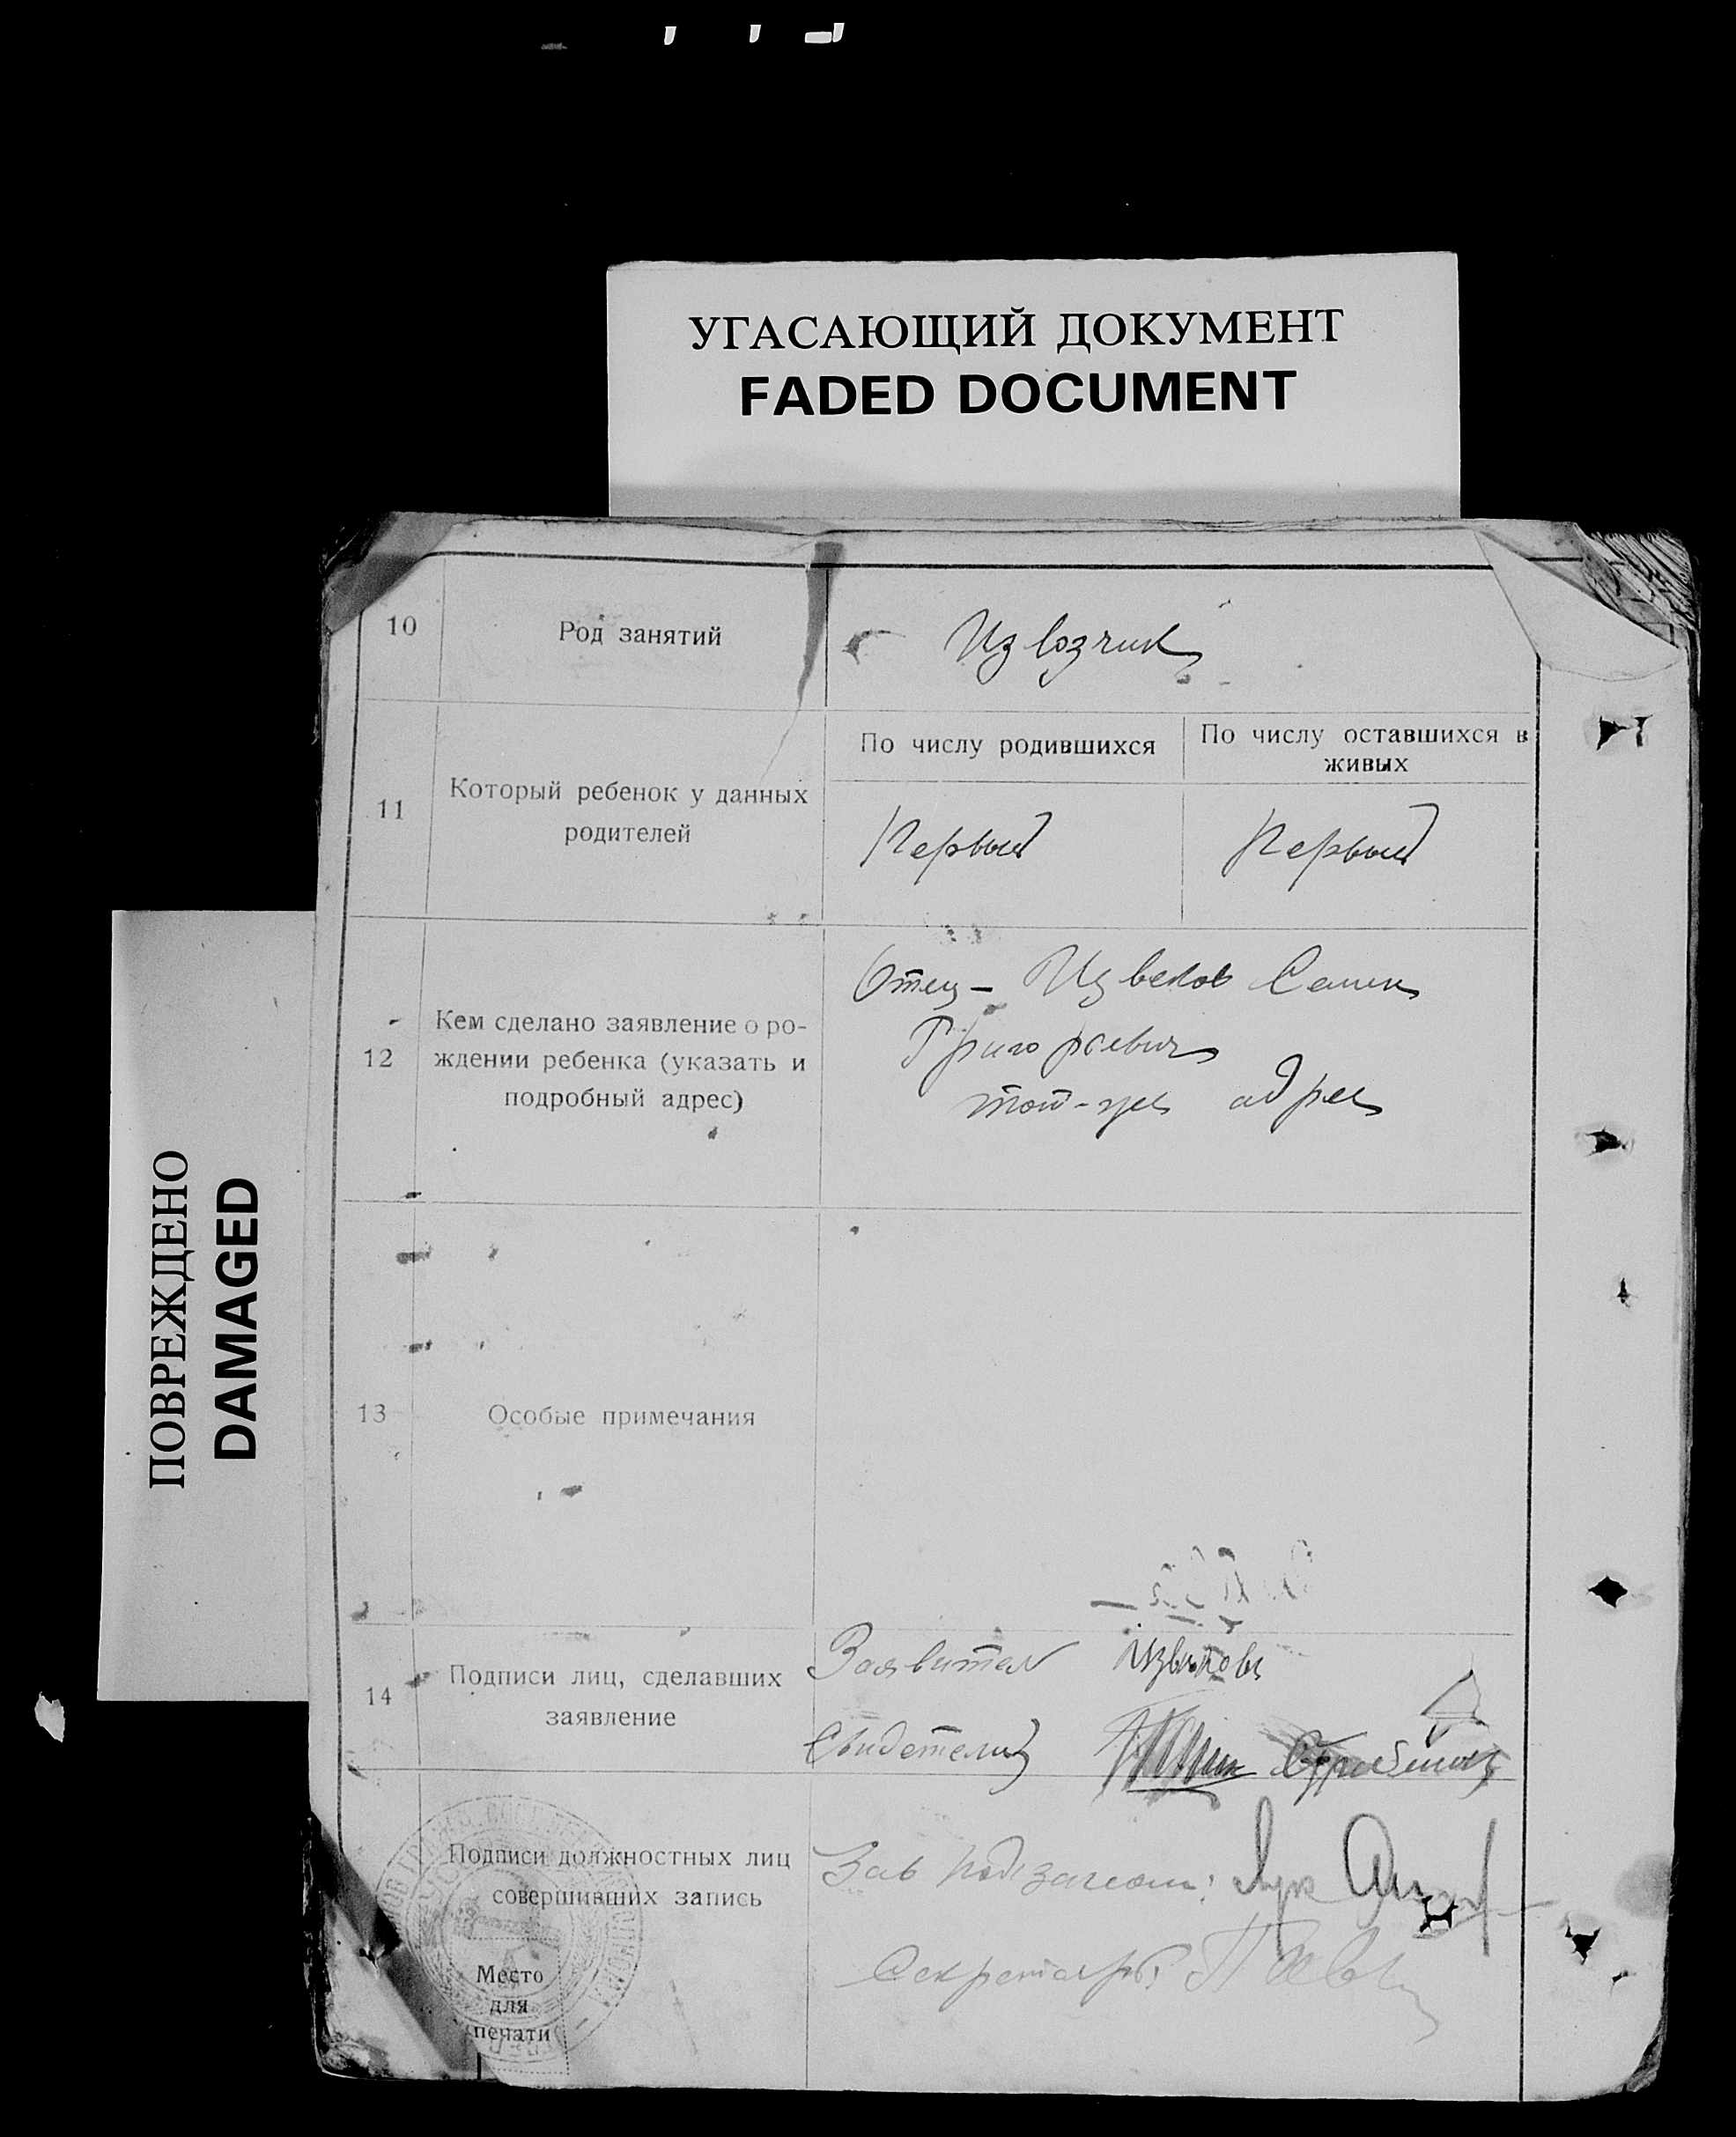 УГАСАЮЩИЙ ДОКУМЕНТ
FADED DOCUMENT
ПОВРЕЖДЕНО
DAMAGED
10
Род занятий
Извозчик
11
Который ребенок у данных
родителей
По числу родившихся
По числу оставшихся в
живых
Первый
Первый
12
Кем сделано заявление о ро-
ждении ребенка (указать и
подробный адрес)
Отец – Извеков
Григорьевич
тот-же адрес
13
Особые примечания
14
Подписи лиц, сделавших
заявление
Заявител
Свидетели
Подписи должностных лиц
совершивших запись
Зав
Секретарь
Место
для
печати